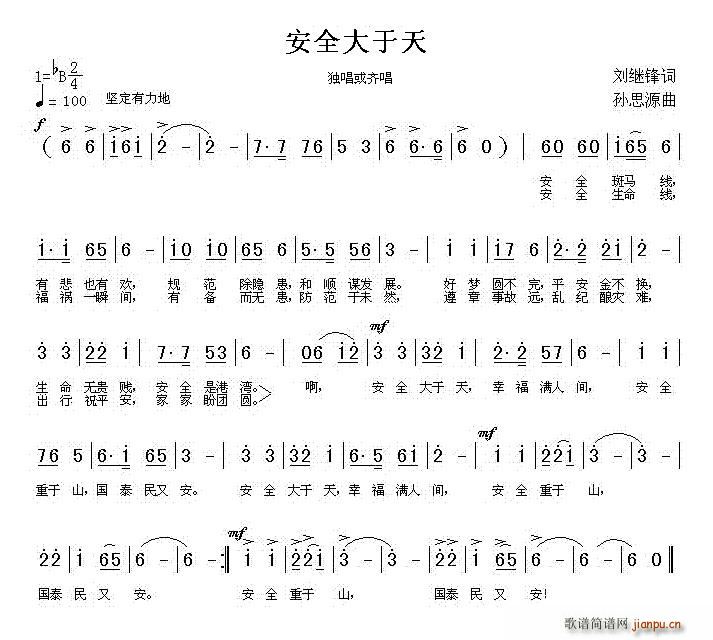 安全大于天
1=♭B 2/4
♩= 100 坚定有力地
独唱或齐唱
刘继锋词
孙思源曲
f
( 6 6 | i6i | 2 - | 2 - | 7·7 76 | 5 3 | 6 6·6 | 6 0 ) | 60 60 | i65 6 |
安 全 斑马 线,
安 全 生命 线,
i·i 65 | 6 - | i0 i0 | 65 6 | 5·5 56 | 3 - | i i | i7 6 | 2·2 2i | 2 - |
有 悲 也有 欢, 规 范 除隐 患,和 顺 谋发 展。 好 梦 圆不 完,平 安 金不 换,
福 祸 一瞬 间, 有 备 而无 患,防 范 于未 然, 遵 章 事故 远,乱 纪 酿灾 难,
mf
3 3 | 22 i | 7·7 53 | 6 - | 06 i2 | 3 3 | 32 i | 2·2 57 | 6 - | i i |
生 命 无贵 贱,安 全 是港 湾。 啊, 安 全 大于 天,幸 福 满人 间, 安全
出 行 祝平 安,家 家 盼团 圆。
mf
76 5 | 6·i 65 | 3 - | 3 3 | 32 i | 6·5 6i | 2 - | i i | 22i | 3 - | 3 - |
重于 山,国 泰 民又 安。 安 全 大于 天,幸 福 满人 间, 安全 重于 山,
mf
22 | i 65 | 6 - | 6 - :| i i | 22i | 3 - | 3 - | 22 | i 65 | 6 - | 6 0 |
国泰 民 又 安。 安 全 重于 山, 国泰 民 又 安!
歌谱简谱网
jianpu.cn